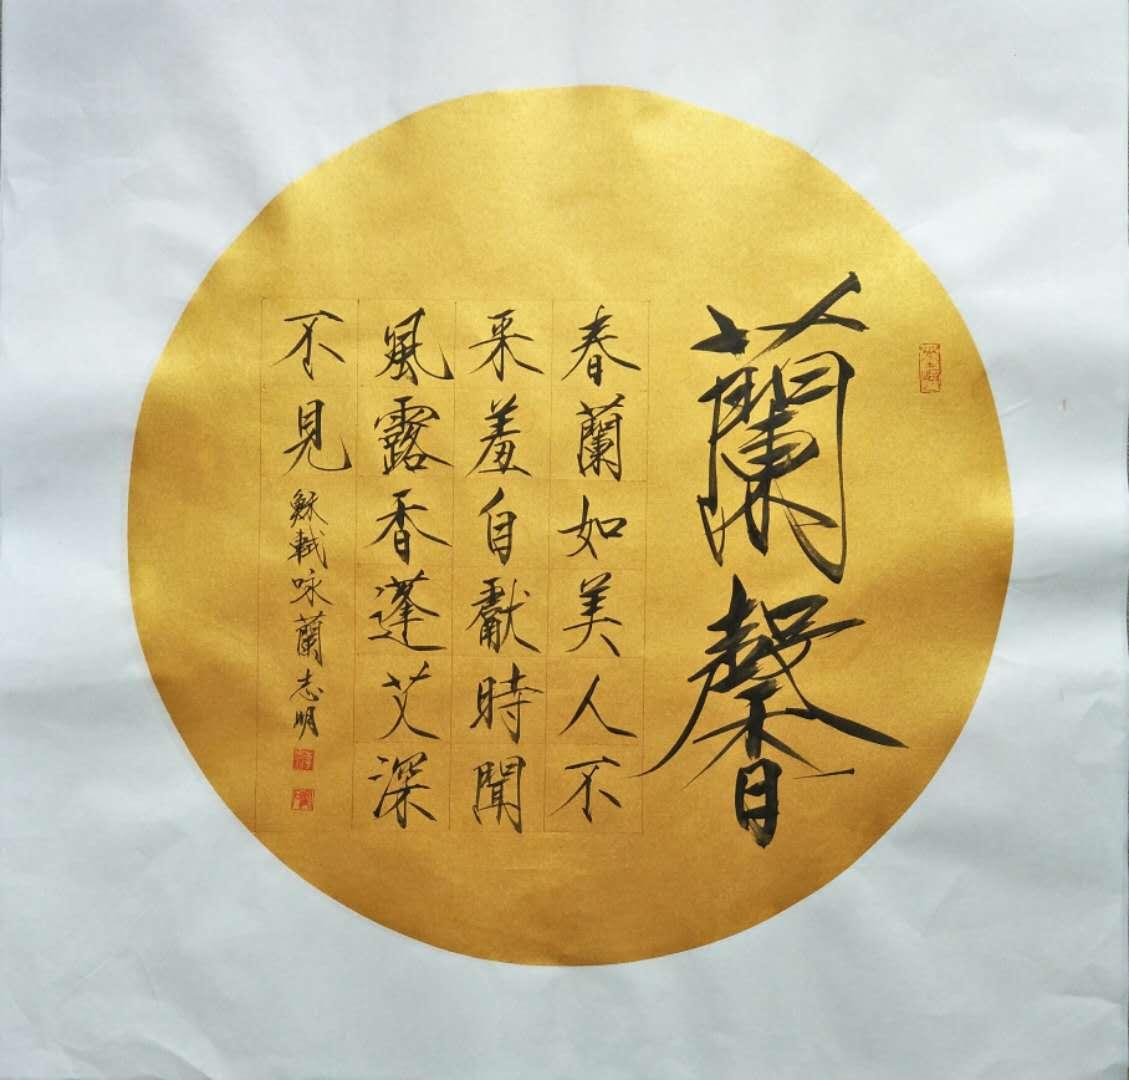 蘭馨
春蘭如美人不
采羞自獻時聞
風露香蓬艾深
不見
穌軾咏蘭志明